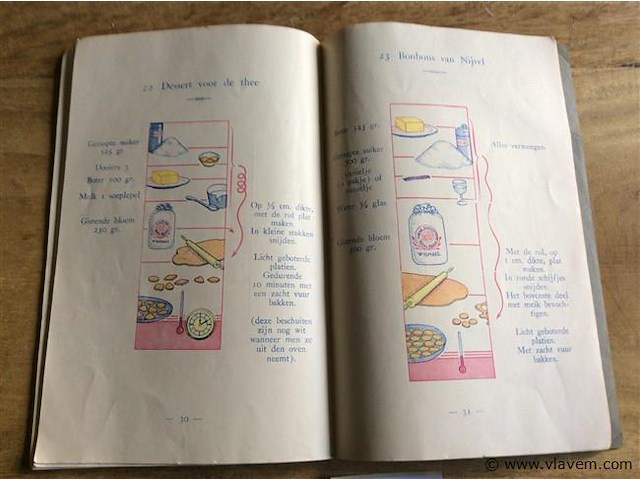 22 Dessert voor de thee
Gezeefte suiker
125 gr.
Dooiers 3
Boter 100 gr.
Melk 1 soeplepel
Gistende bloem
250 gr.
Op ½ cm. dikte,
met de rol plat
maken.
In kleine stukken
snijden.
Licht geboterde
platien.
Gedurende
10 minuten met
een zacht vuur
bakken.
(deze beschuiten
zijn nog wit
wanneer men ze
uit den oven
neemt).
— 30 —
23 Bonbons van Nijvel
Boter 125 gr.
suiker
gr.
Water ¾ glas
bloem
gr.
Alles vermengen
Met de rol, op
1 cm. dikte, plat
maken.
In ronde schijfjes
snijden.
Het bovenste deel
met melk bevoch-
tigen.
Licht geboterde
platien.
Met zacht vuur
bakken.
— 31 —
© www.vlavem.com